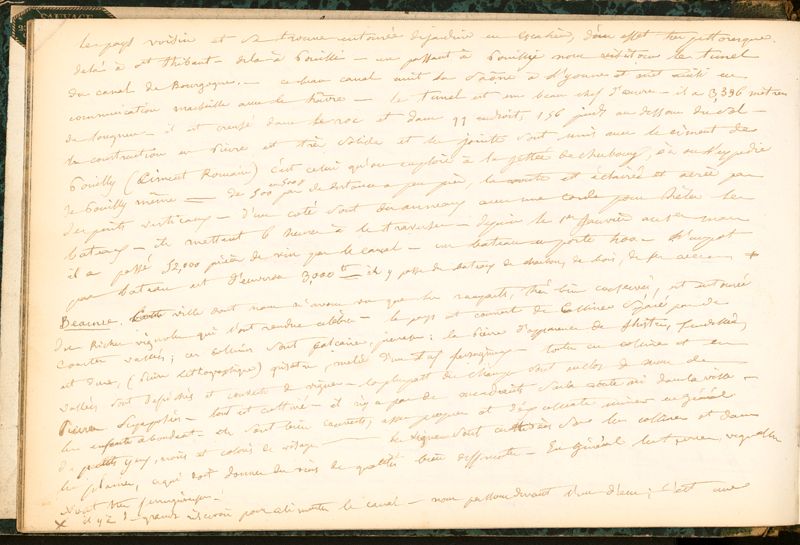 SAUVAGE
les pays voisin et se trouve entourée de jardin en escalier, d'un effet très pittoresque.
delà à St Thibaut - delà à Pouilli - en passant à Pouilly nous visitons le tunel
du canal de Bourgogne. - ce beau canal unit la Saône à l'Yonne et met ainsi en
communication Marseille avec le Hâvre - le tunel est un beau chef d'œuvre - il a 3,336 mètres
de longueur - il est creusé dans le roc et dans 11 endroits, 156 pieds au dessous du sol -
la construction en Pierre est très solide et les joints sont unis avec le ciment de
Pouilly (Ciment Romain) c'est celui qu'on employe à la jettée de cherbourg,
de Pouilly même - de 500 en 500 pas de distance a peu près, la voute est éclairée et aérée par
des puits verticaux - D'un coté sont des anneaux avec une corde pour hêler les
bateaux - ils mettent 6 heures à le traverser - depuis le 1er Janvier au 1er mars
il a passé 52,000 pièces de vin par le canal - un bateau en porte 400 -
par bateau est d'environ 3,000 tt - il y passe des bateaux de charbon, de bois, de fer +
Beaune. Cette ville dont nous n'avons vu que les remparts, très bien conservés, est entourée
de Riches vignobles qui l'ont rendue célèbre - le pays est couvert de Collines séparé par de
Courtes vallées; ces collines sont calcaires; la Pierre
et dure, (Pierre lithographique) grisatre, mêlé d'un tuf ferrugineux - toutes ces collines et ces
vallées sont tapissées et couvertes de vignes - la plupart des champs sont enclos de murs de
Pierres superposées - tout est cultivé - il n'y a pas de mendiants
les enfants abondent - ils sont bien couverts, assez propres et
de petits yeux, noirs et colorés de visage - les vignes sont cultivées sur les collines et dans
les plaines, ce qui doit donner des vins de qualités bien différente - En général les terres vignobles
sont très ferrugineuses -
+ il y a de grands réservoirs pour alimenter le canal - nous passons devant l'un d'eux; c'est une